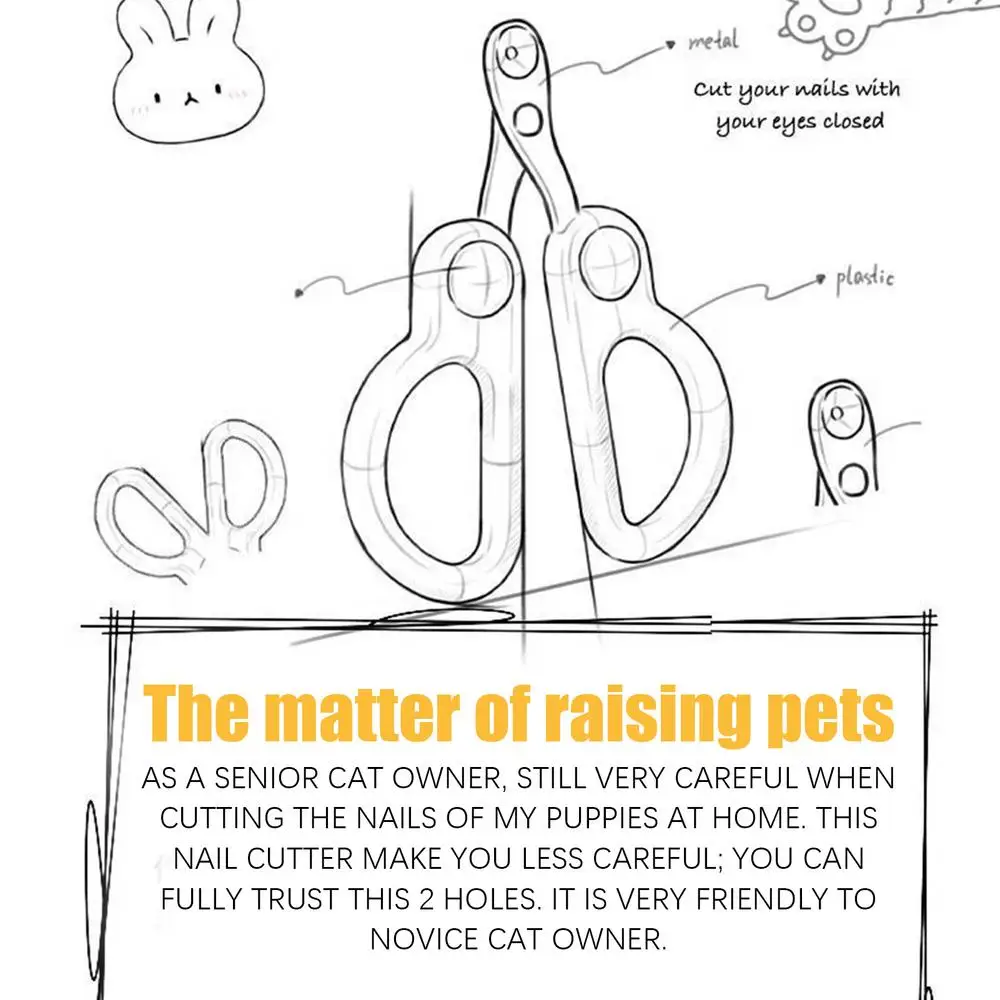 metal
Cut your nails with
your eyes closed
plastic
The matter of raising pets
AS A SENIOR CAT OWNER, STILL VERY CAREFUL WHEN
CUTTING THE NAILS OF MY PUPPIES AT HOME. THIS
NAIL CUTTER MAKE YOU LESS CAREFUL; YOU CAN
FULLY TRUST THIS 2 HOLES. IT IS VERY FRIENDLY TO
NOVICE CAT OWNER.